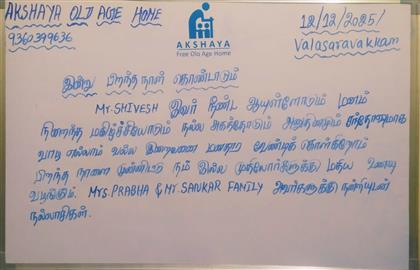 AKSHAYA OLD AGE HOME
9360399636
AKSHAYA
Free Old Age Home
12/12/2025/
Valasaravakkam
இன்று பிறந்த நாள் கொண்டாடும்
Mr. SHIVESH இவர் நீண்ட ஆயுளோடும் மனம்
நிறைந்த மகிழ்ச்சியோடும் நல்ல அகத்தோடும் அனுதினமும் சந்தோஷமாக
வாழ எல்லாம் வல்ல இறைவனை மனதார வேண்டிக் கொள்கிறோம்
பிறந்த நாளை முன்னிட்டு நம் இல்ல முதியோர்களுக்கு மதிய உணவு
வழங்கும். Mrs. PRABHA & Mr. SANKAR FAMILY அவர்களுக்கு நன்றியுடன்
நல்வாழ்த்துகள்.